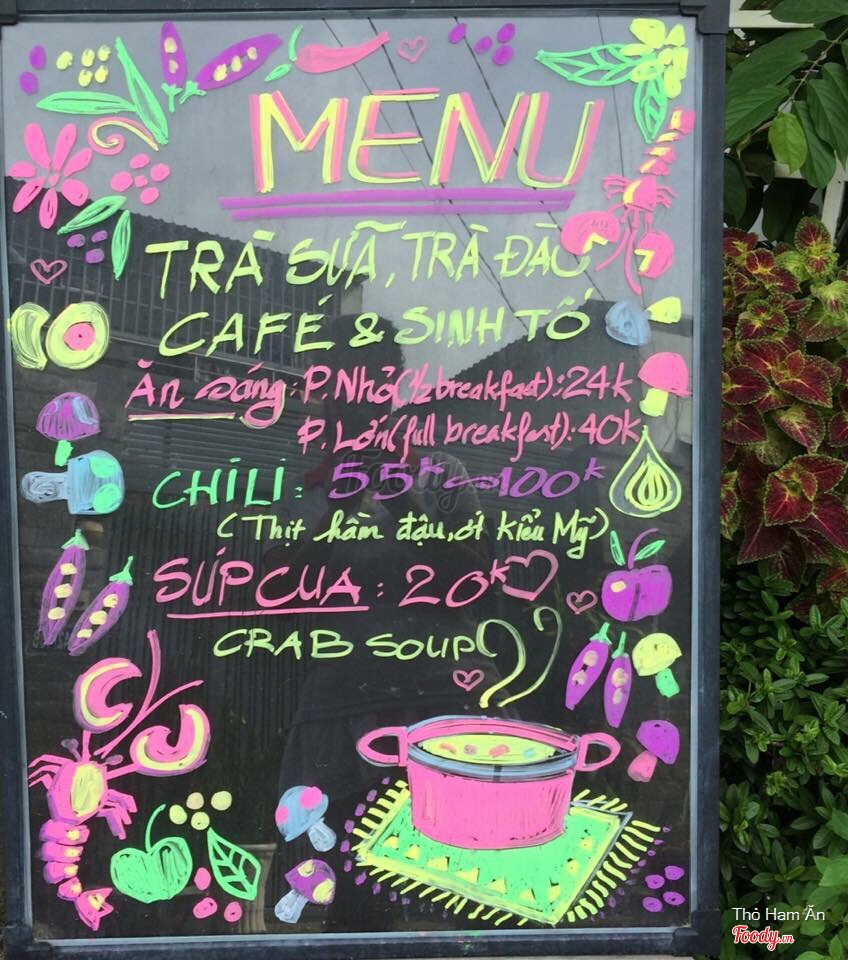 MENU
TRÀ SỮA, TRÀ ĐÀO
CAFÉ & SINH TỐ
Ăn sáng: P. Nhỏ (1/2 breakfast): 24k
P. Lớn (full breakfast): 40k
CHILI: 55k ~ 100k
(Thịt hầm đậu, ớt kiểu Mỹ)
SÚP CUA: 20k
CRAB SOUP
Foody.vn
Thỏ Ham Ăn
Foody.vn